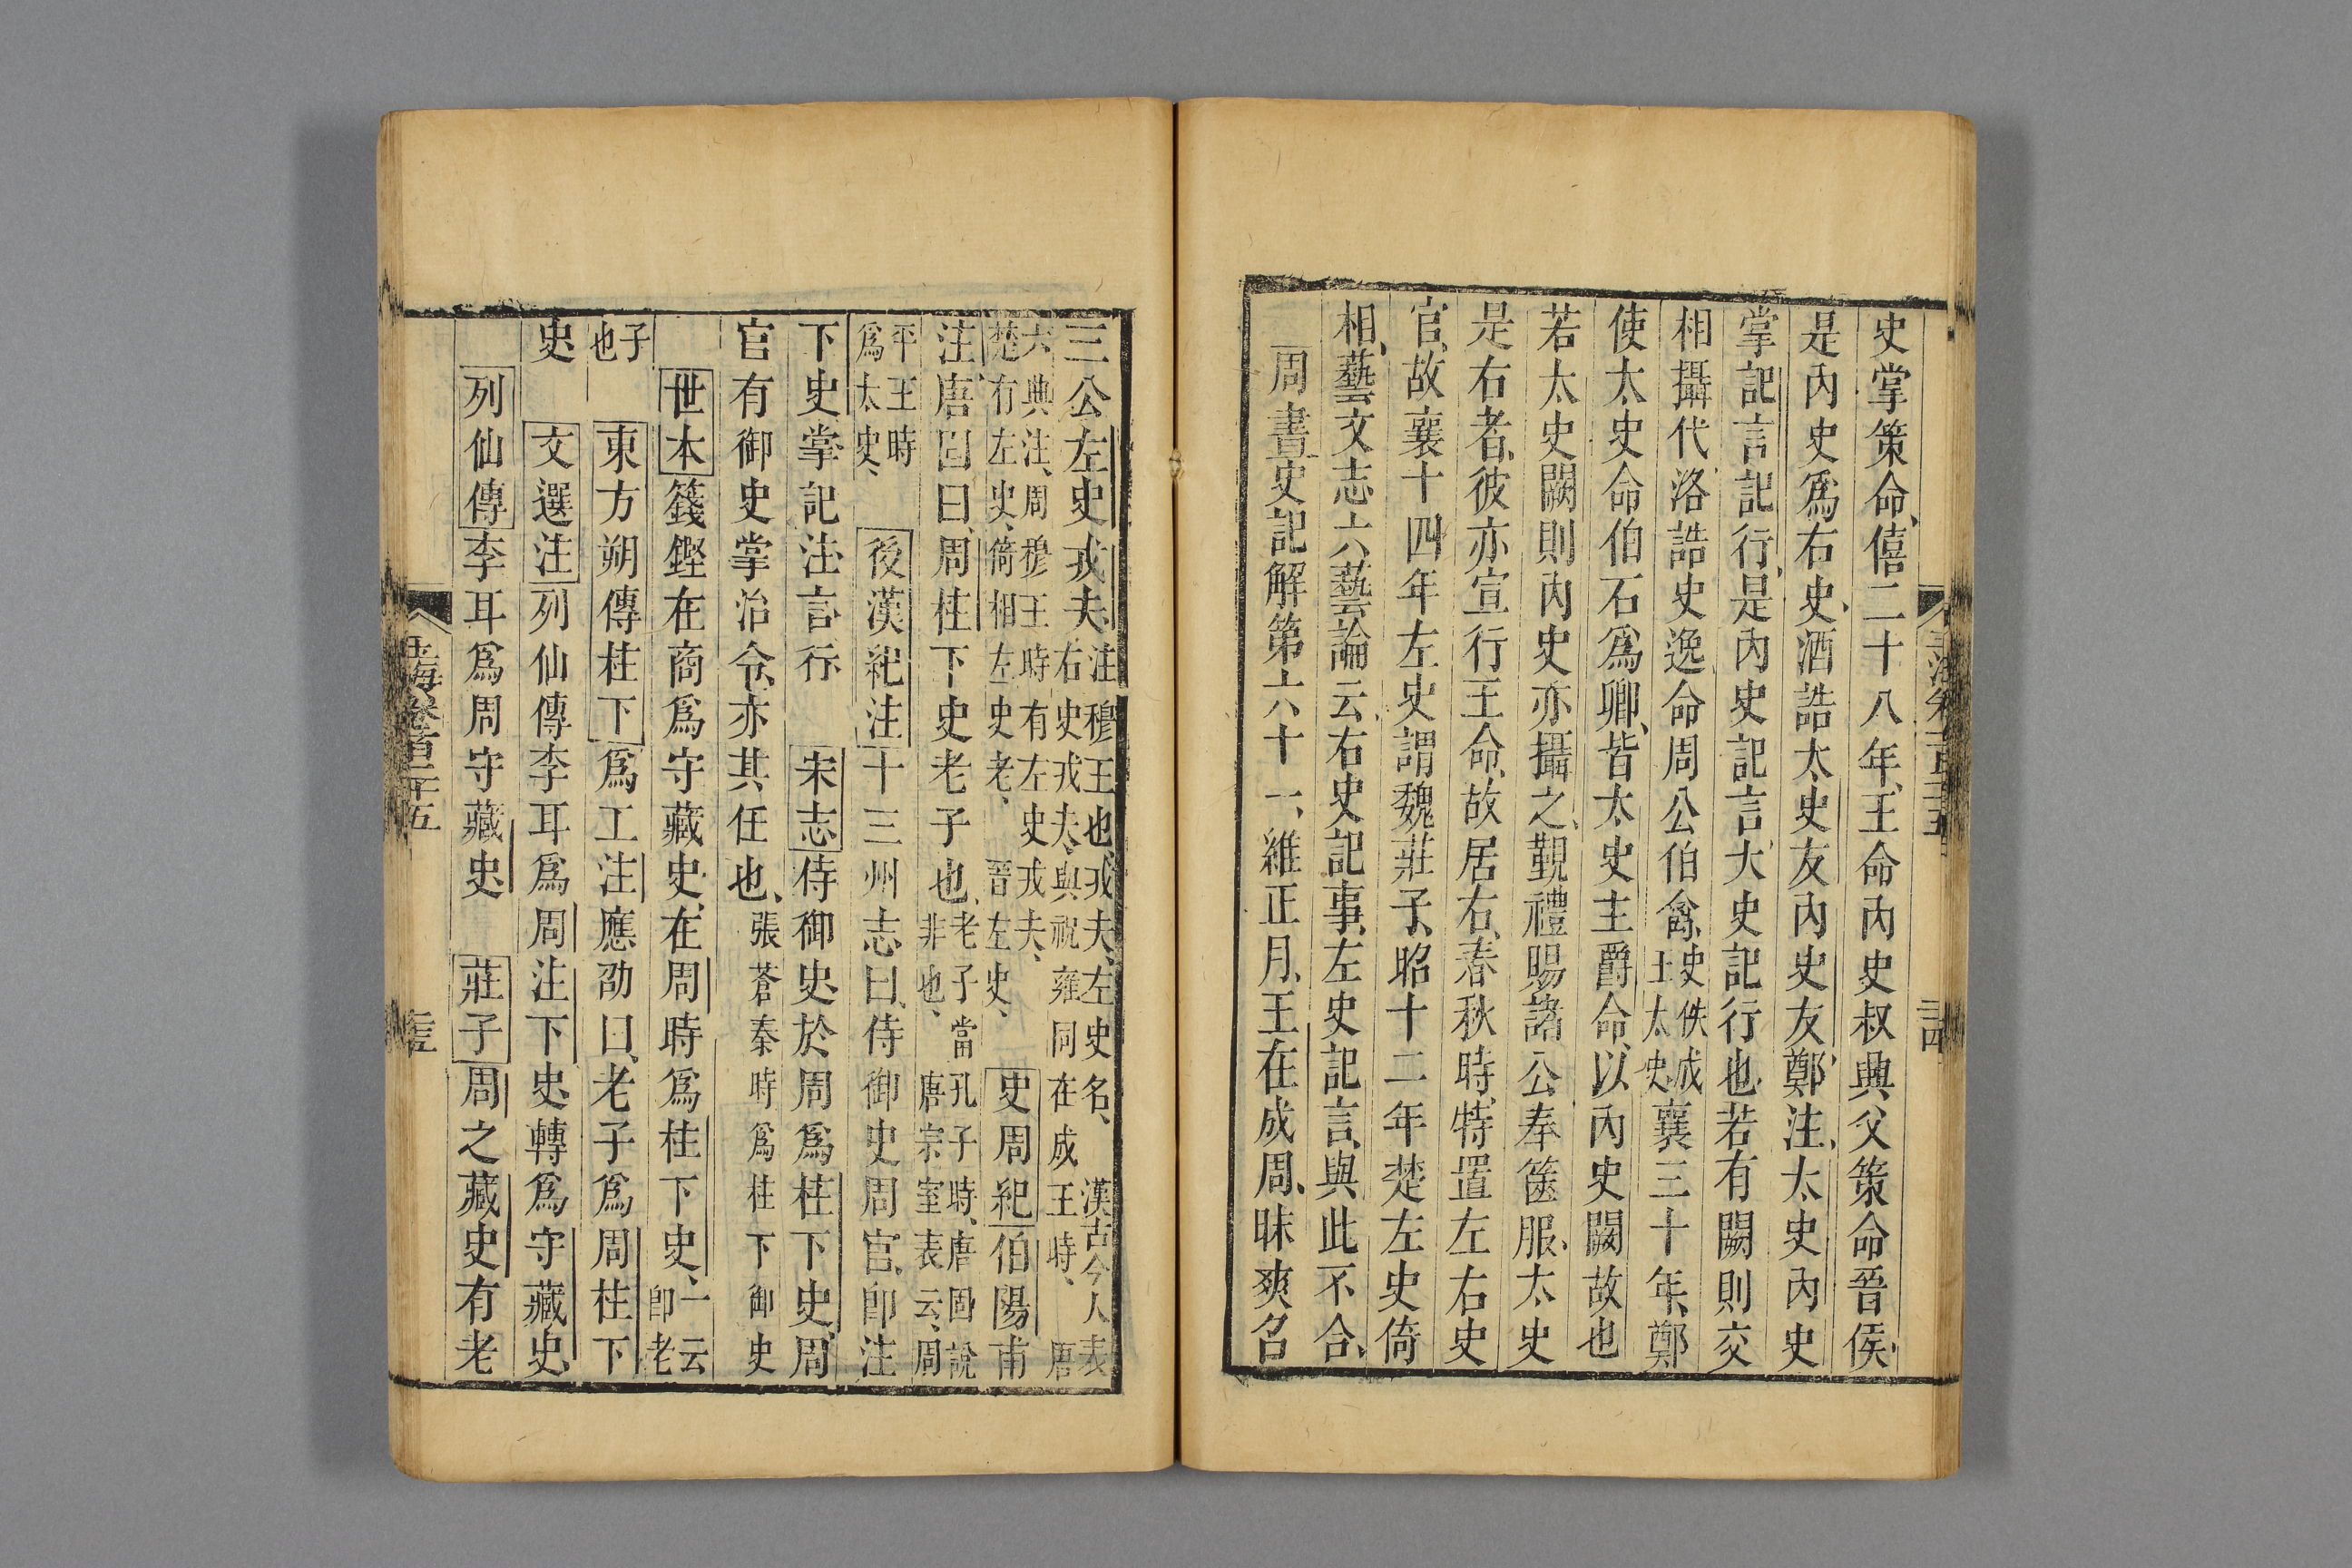 史掌策命、僖二十八年、王命內史叔興父策命晉侯、
是內史爲右史、酒誥太史友內史友、鄭注、太史內史
掌記言記行、是內史記言大史記行也、若有闕則交
相攝代、洛誥史逸命周公伯禽、史佚成王太史、襄三十年、鄭
使太史命伯石爲卿、皆太史主爵命、以內史闕故也
若太史闕則內史亦攝之、覲禮賜諸公奉篋服、太史
是右者、彼亦宣行王命、故居右、春秋時、特置左右史
官、故襄十四年左史謂魏莊子、昭十二年楚左史倚
相、藝文志六藝論云、右史記事、左史記言、與此不合、
周書史記解第六十一、維正月、王在成周、昧爽召
三公左史戎夫、注穆王也、戎夫、左史名、漢古今人表
右史戎夫、與祝雍同在成王時、唐
六典注、周穆王時有左史戎夫、
楚有左史倚相、左史老、晉左史、史周紀伯陽甫
注、唐固曰、周柱下史老子也、老子當孔子時、唐固說
非也、唐宗室表云、周
平王時
爲太史、後漢紀注十三州志曰、侍御史周官、卽注
下史掌記注言行宋志侍御史於周爲柱下史、周
官有御史掌治令、亦其任也、張蒼秦時爲柱下御史
世本籛鏗在商爲守藏史、在周時爲柱下史、一云
卽老
子
也東方朔傳柱下爲工注應劭曰、老子爲周柱下
史文選注列仙傳李耳爲周注下史、轉爲守藏史、
列仙傳李耳爲周守藏史莊子周之藏史有老